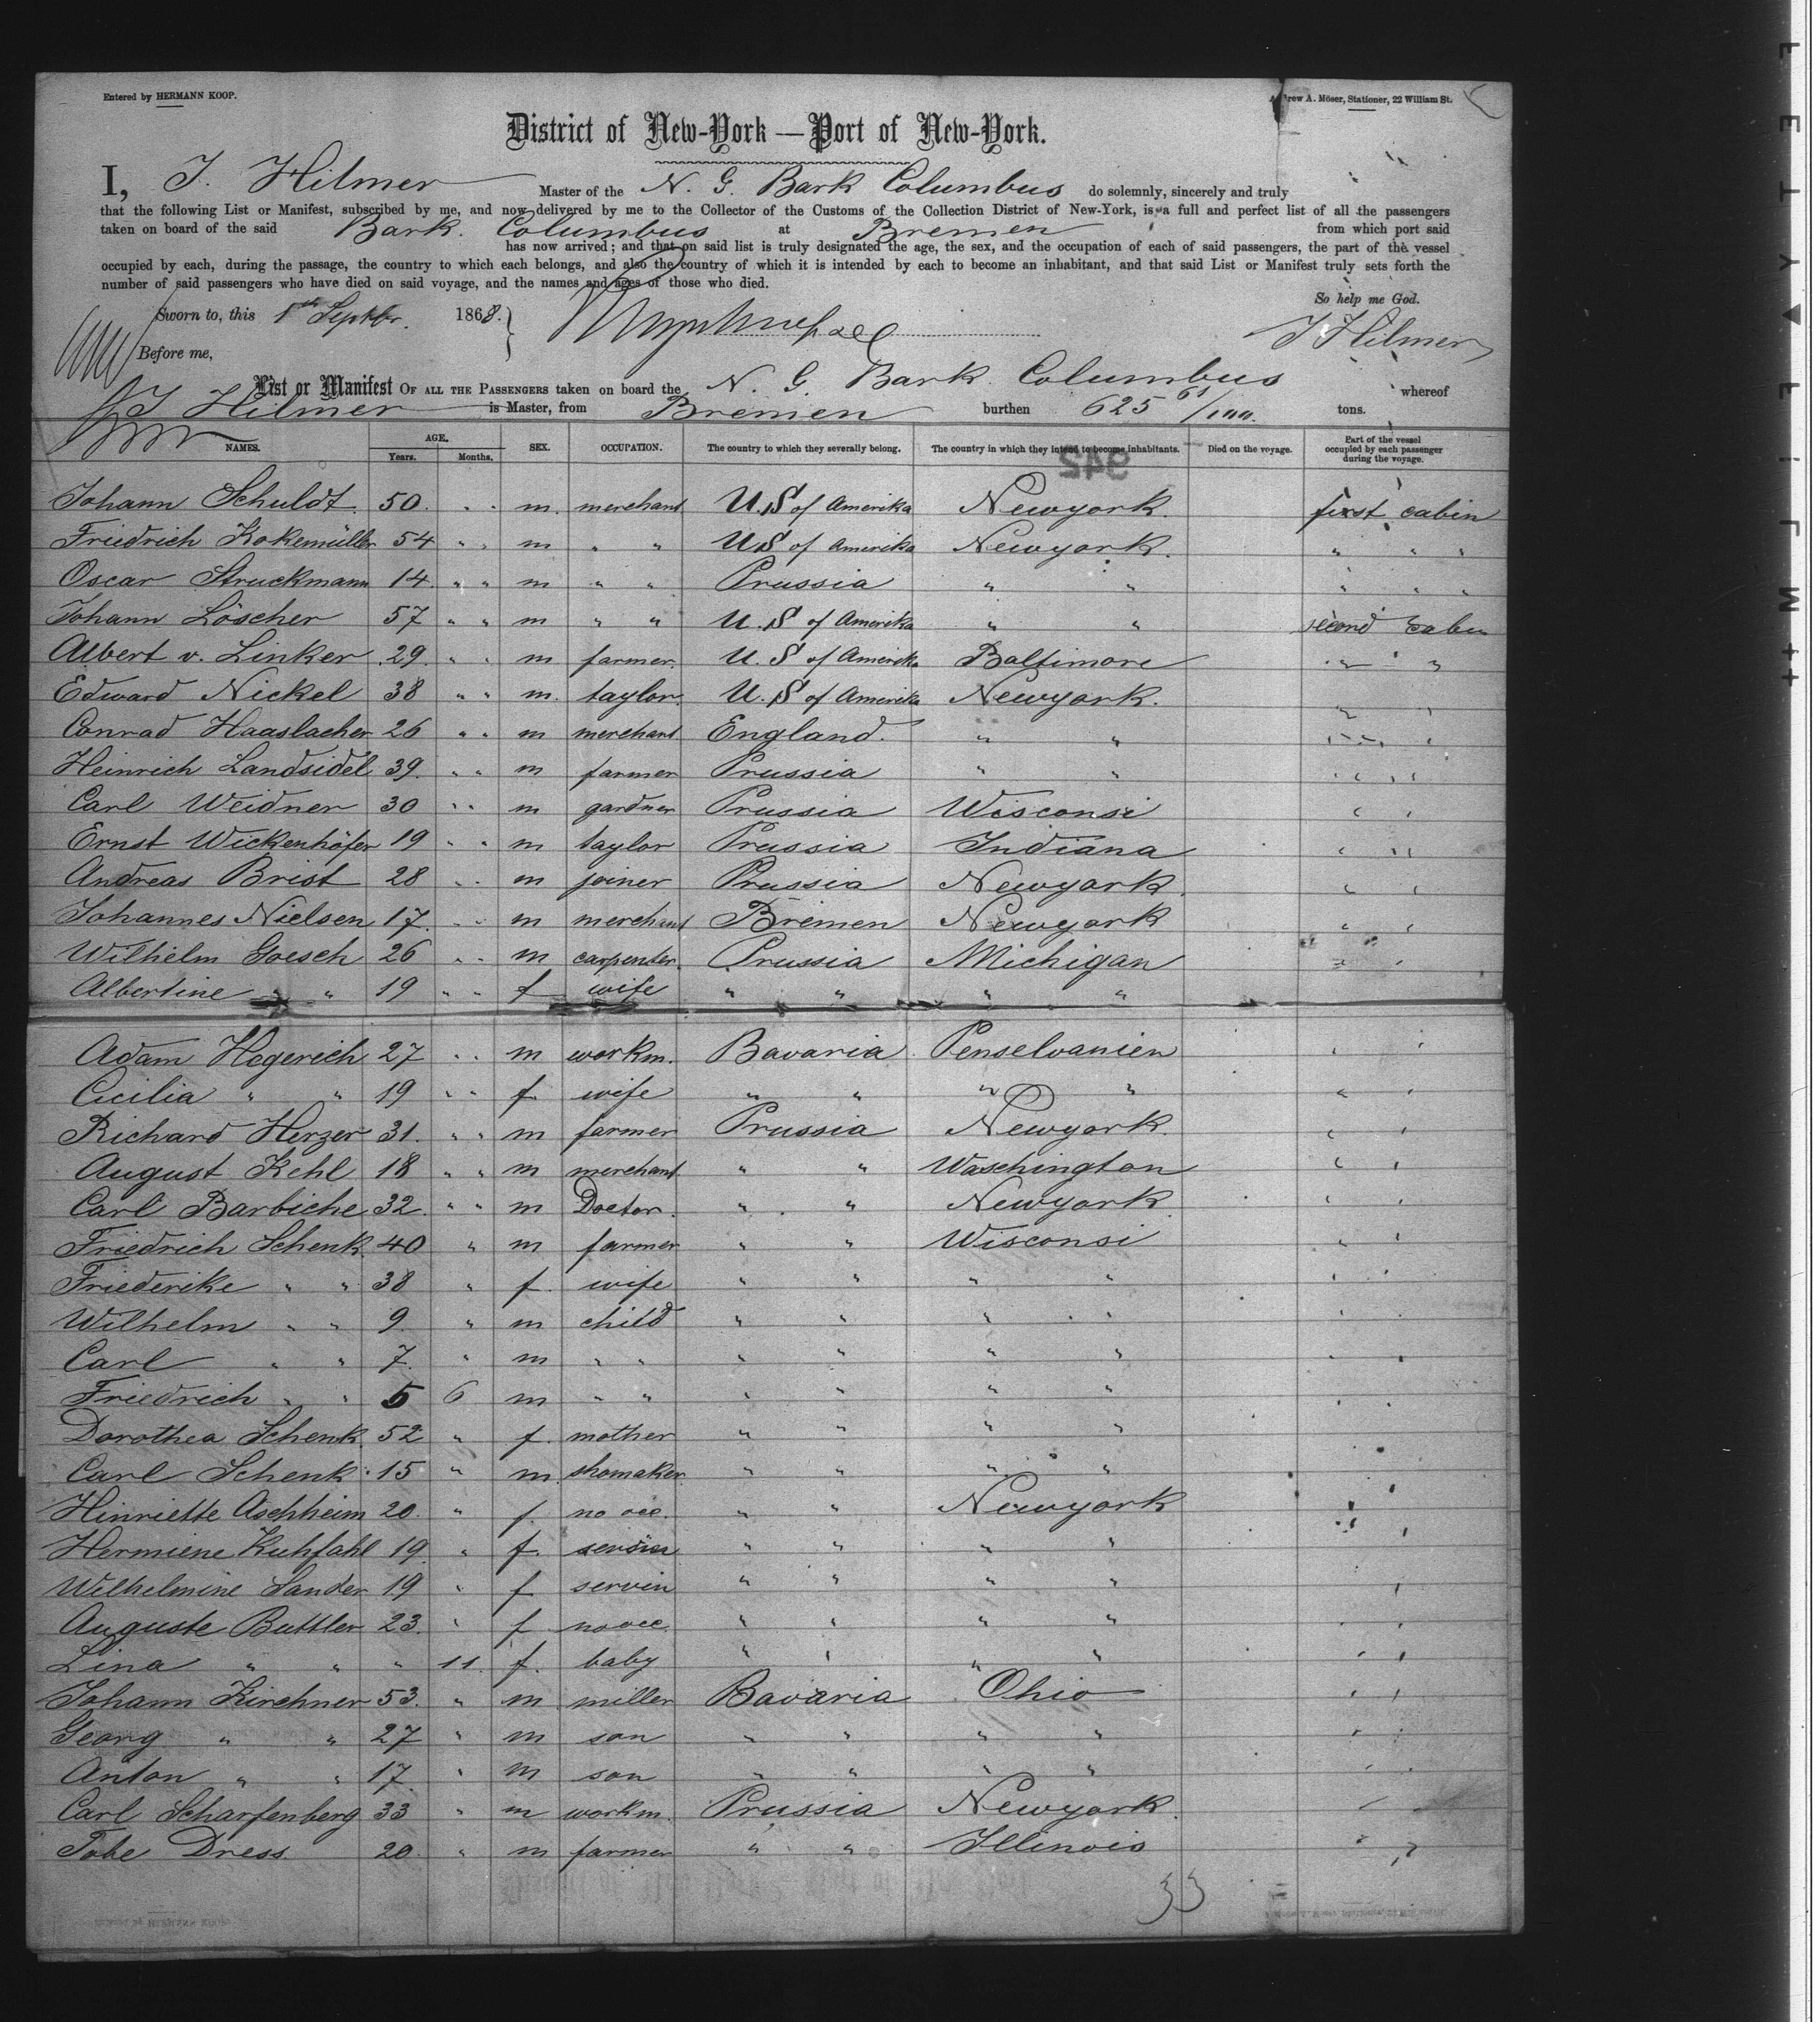 Entered by HERMANN KOOP.
Andrew A. Möser, Stationer, 22 William St.
District of New-York — Port of New-York.
I, J. Hilmer Master of the N. G. Bark Columbus do solemnly, sincerely and truly
that the following List or Manifest, subscribed by me, and now delivered by me to the Collector of the Customs of the Collection District of New-York, is a full and perfect list of all the passengers
taken on board of the said Bark. Columbus at Bremen from which port said
has now arrived; and that on said list is truly designated the age, the sex, and the occupation of each of said passengers, the part of the vessel
occupied by each, during the passage, the country to which each belongs, and also the country of which it is intended by each to become an inhabitant, and that said List or Manifest truly sets forth the
number of said passengers who have died on said voyage, and the names and ages of those who died.
So help me God.
Sworn to, this 1th Septbr. 1868.
J Hilmer
Before me,
List or Manifest OF ALL THE PASSENGERS taken on board the N. G. Bark. Columbus whereof
J Hilmer is Master, from Bremen burthen 625 61/100. tons.
NAMES. AGE. Years. Months. SEX. OCCUPATION. The country to which they severally belong. The country in which they intend to become inhabitants. Died on the voyage. Part of the vessel occupied by each passenger during the voyage.
942
Johann Schuldt. 50. " " m. merchant U.S of Amerika Newyork. first cabin
Friedrich Kokemüller 54 " " m " " U.S of Amerika Newyork. " " "
Oscar Struckmann 14. " " m " " Prussia " " " " "
Johann Löscher 57 " " m " " U.S of Amerika " " second cabin
Albert v. Linker 29. " " m farmer. U.S of Amerika Baltimore " "
Edward Nickel 38 " " m. taylor. U.S of Amerika Newyork. " "
Conrad Haaslacher 26 " " m merchant England. " " " "
Heinrich Landsidel 39. " " m farmer Prussia " " " "
Carl Weidner 30 " " m gardner Prussia Wisconsi " "
Ernst Wickenhöfer 19 " " m taylor Prussia Indiana " "
Andreas Brist 28 " " m joiner Prussia Newyork. " "
Johannes Nielsen 17. " " m merchant Bremen Newyork " "
Wilhelm Goesch 26 " " m carpenter. Prussia Michigan " "
Albertine " " 19 " " f wife " " " "
Adam Hegerich 27 " " m workm. Bavaria Penselvanien " "
Cicilia " " 19 " " f. wife " " " " " "
Richard Herzer 31. " " m farmer Prussia Newyork. " "
August Kehl 18 " " m merchant " " Waschington " "
Carl Barbiche 32. " " m Doctor. " " Newyork. " "
Friedrich Schenk 40 " m farmer " " Wisconsi " "
Friederike " " 38 " f. wife " " " " " "
Wilhelm " " 9. " m child " " " " " "
Carl " " 7. " m " " " " " " " "
Friedrich " " 5 6 m " " " " " " " "
Dorothea Schenk 52 " f. mother " " " " " "
Carl Schenk 15 " m. shomaker " " " "
Hinriette Aschheim 20. " f. no occ. " " Newyork "
Hermiene Kuhfahl 19. " f. " " " " "
Wilhelmine Sander 19 " f servin " " " " "
Auguste Buttler 23. " f no occ. " " " " " "
Lina " " " 11. f. baby " " " " " "
Johann Kirchner 53. " m miller Bavaria Ohio " "
Georg " " 27 " m son " " " " " "
Anton " " 17. " m son " " " " " "
Carl Scharfenberg 33 " m workm. Prussia Newyork. " "
Tobe Dress. 20. " m farmer " " Illinois " "
33